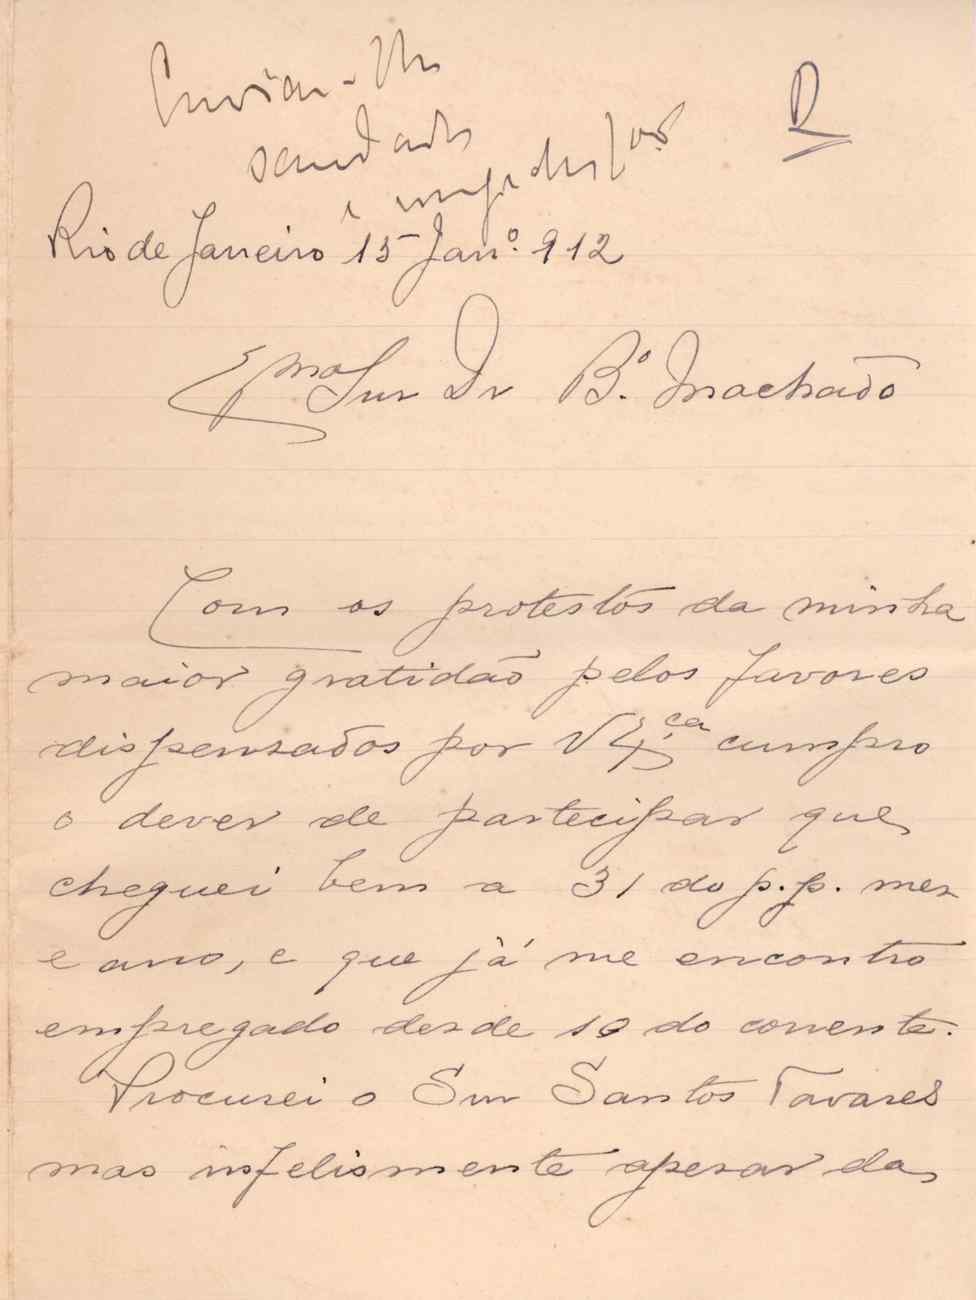 Enviar-lhe
saudades
R
e
Rio de Janeiro 15 Janº. 912
Exmo Snr Dr Bº. Machado
Com os protestos da minha
maior gratidão pelos favores
dispensados por V Excia cumpro
o dever de partecipar que
cheguei bem a 31 do p.p. mez
e ano, e que já me encontro
empregado desde 10 do corrente.
Procurei o Snr Santos Tavares
mas infelismente apezar das